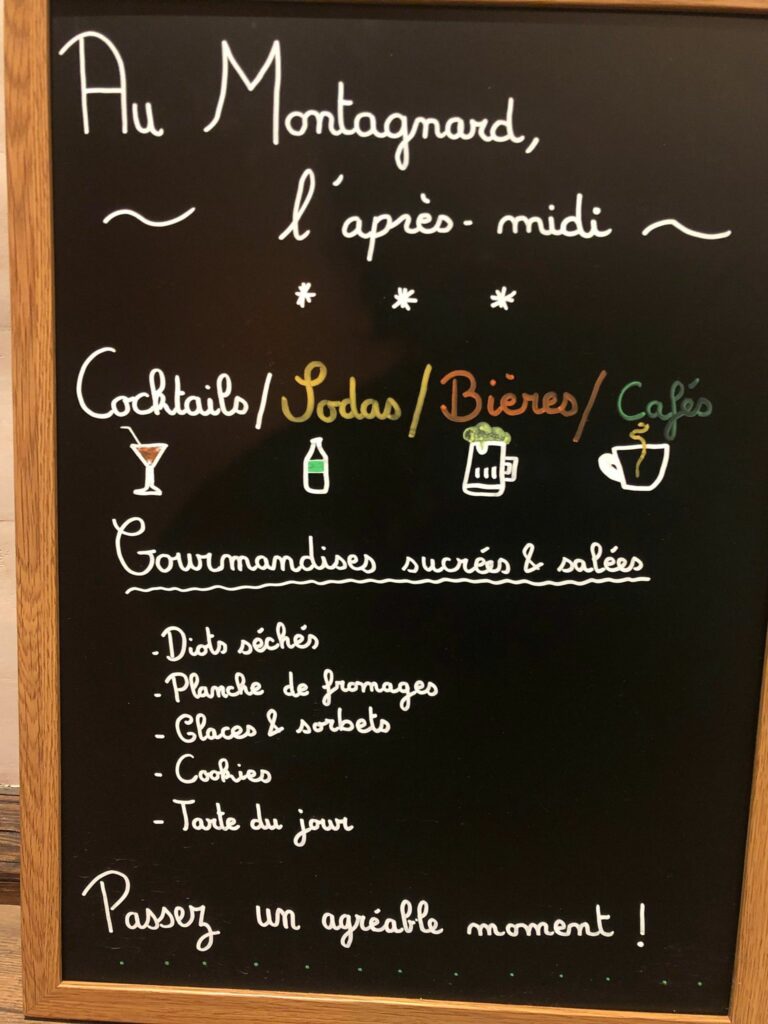 Au Montagnard,
~ l'après-midi ~
* * *
Cocktails / Sodas / Bières / Cafés
Gourmandises sucrées & salées
- Diots séchés
- Planche de fromages
- Glaces & sorbets
- Cookies
- Tarte du jour
Passez un agréable moment !